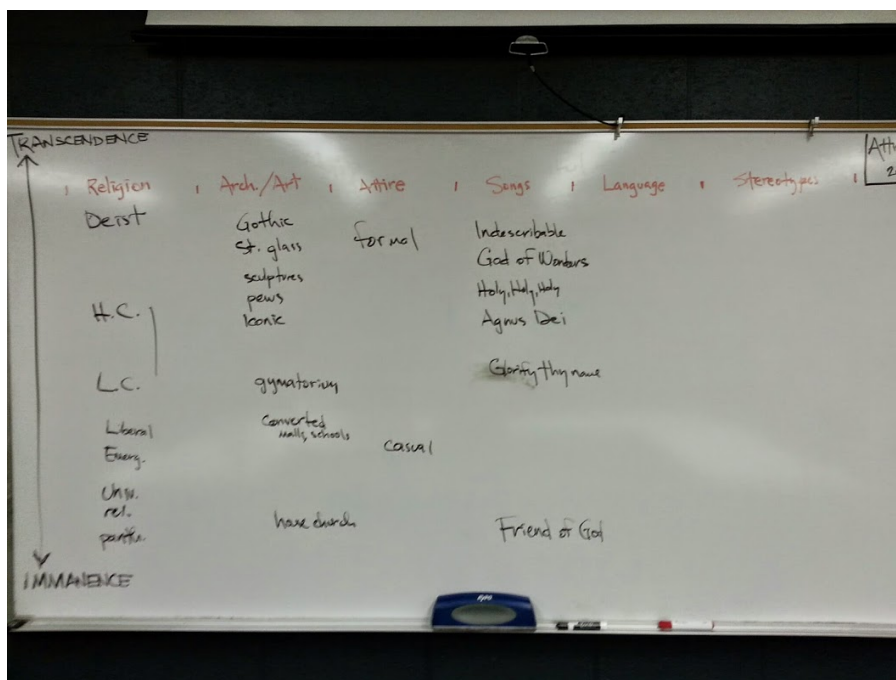 TRANSCENDENCE
Religion Arch./Art Attire Songs Language Stereotypes
Deist
H.C.
L.C.
Liberal
Emerg.
Univ.
rel.
Gothic
St. glass
sculptures
pews
Iconic
gymatorium
Converted
malls, schools
house church
formal
casual
Indescribable
God of Wonders
Holy, Holy, Holy
Agnus Dei
Glorify thy name
Friend of God
IMMANENCE
Expo